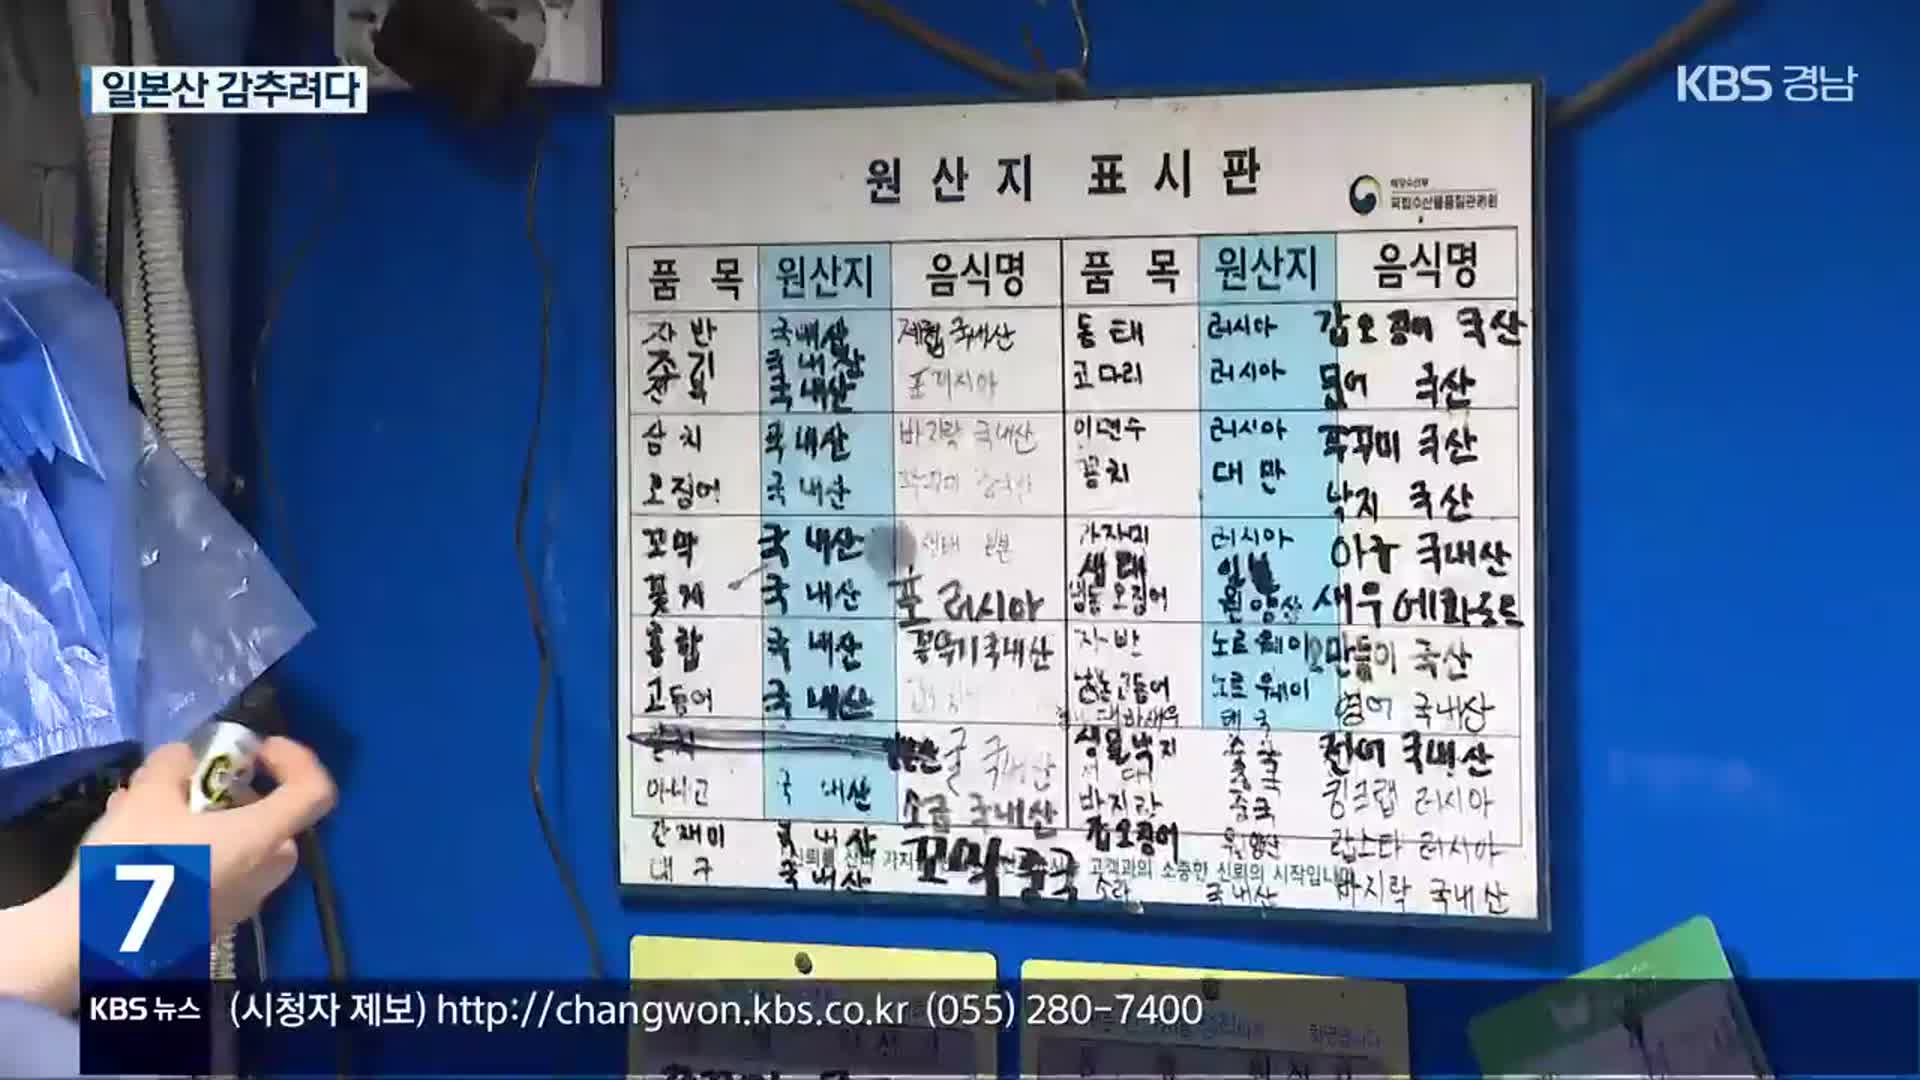 일본산 감추려다
KBS 경남
원산지 표시판
해양수산부
국립수산물품질관리원
품목 원산지 음식명 품목 원산지 음식명
자반 국내산 제첩 국내산 동태 러시아 갑오징어 국산
조기 국내산
전복 국내산 포 러시아 코다리 러시아 문어 국산
삼치 국내산 바지락 국내산 이면수 러시아 쭈꾸미 국산
오징어 국내산 꽁치 대만 낙지 국산
꼬막 국내산 생태 일본 가자미 러시아 아구 국내산
생태 일본
꽃게 국내산 포 러시아 냉동오징어 원양산 새우 에콰도르
홍합 국내산 국내산 자반 노르웨이 만득이 국산
고등어 국내산 고등어 노르웨이 병어 국내산
태국
갈치 굴 국내산 생물낙지 중국 전어 국내산
중국
아나고 국내산 소금 국내산 바지락 중국 킹크랩 러시아
간재미 국내산 갑오징어 원양산 랍스타 러시아
고객과의 소중한 신뢰의 시작입니다
대구 국내산 꼬막 중국 소라 국내산 바지락 국내산
7
KBS 뉴스 (시청자 제보) http://changwon.kbs.co.kr (055) 280-7400